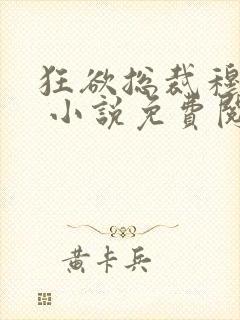 狂欲总裁穆
小說免費閱
黄卡兵